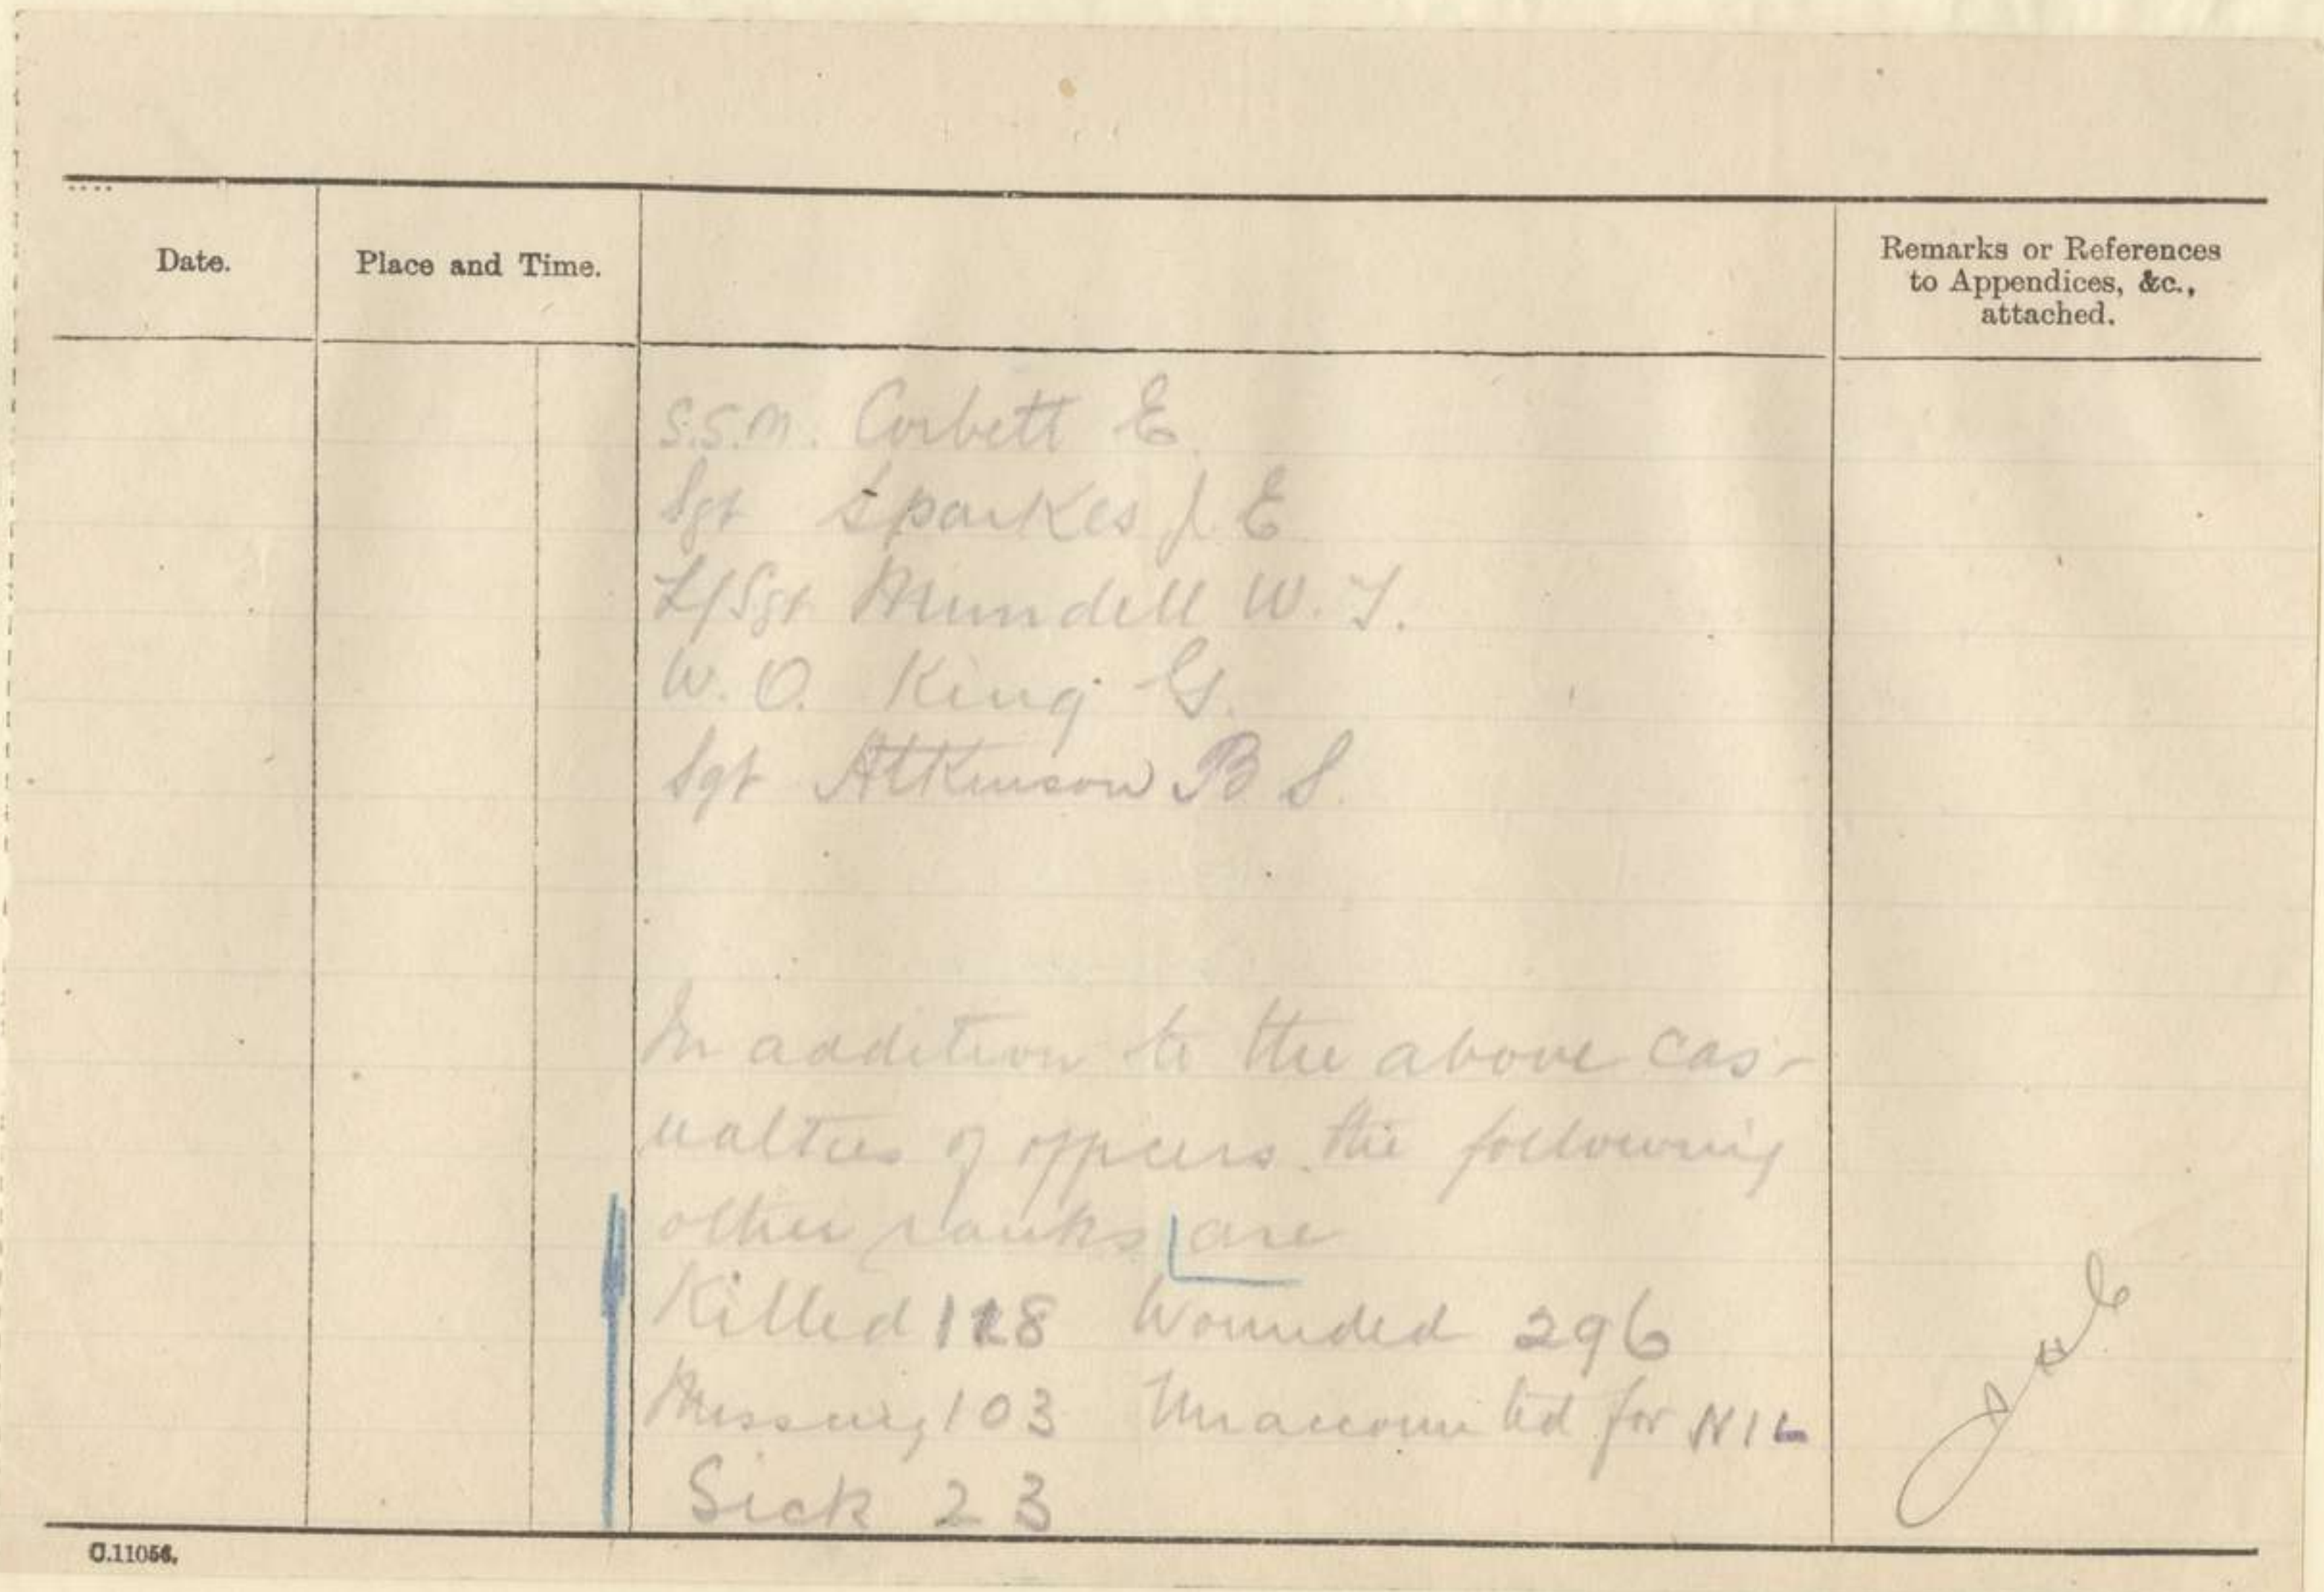 Date.
Place and Time.
Remarks or References
to Appendices, &c.,
attached.
S.S.M. Corbett E.
Sgt Sparkes J. E
L/Sgt Mundell W. T.
W. O. King G.
Sgt Atkinson B S.
In addition to the above cas-
ualties of officers the following
other ranks are
Killed 128 Wounded 296
Missing 103 Unaccounted for NIL
Sick 23
C.11056.